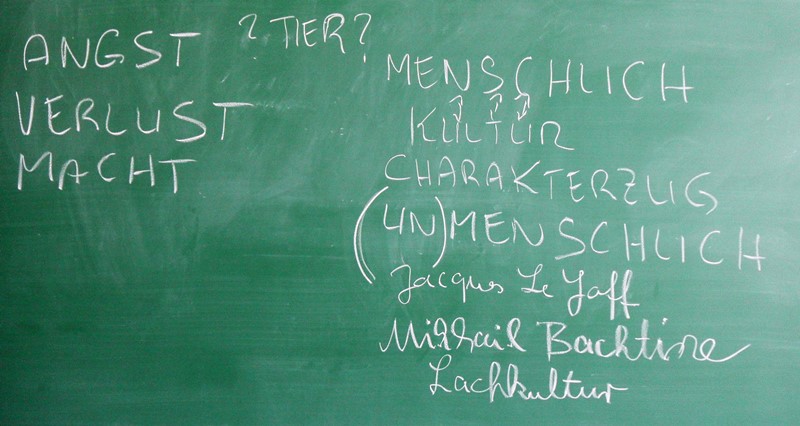 ANGST
? TIER?
VERLUST
MACHT
MENSCHLICH
KULTUR
CHARAKTERZUG
(UN)MENSCHLICH
Jacques Le Goff
Mikhail Bachtine
Lachkultur